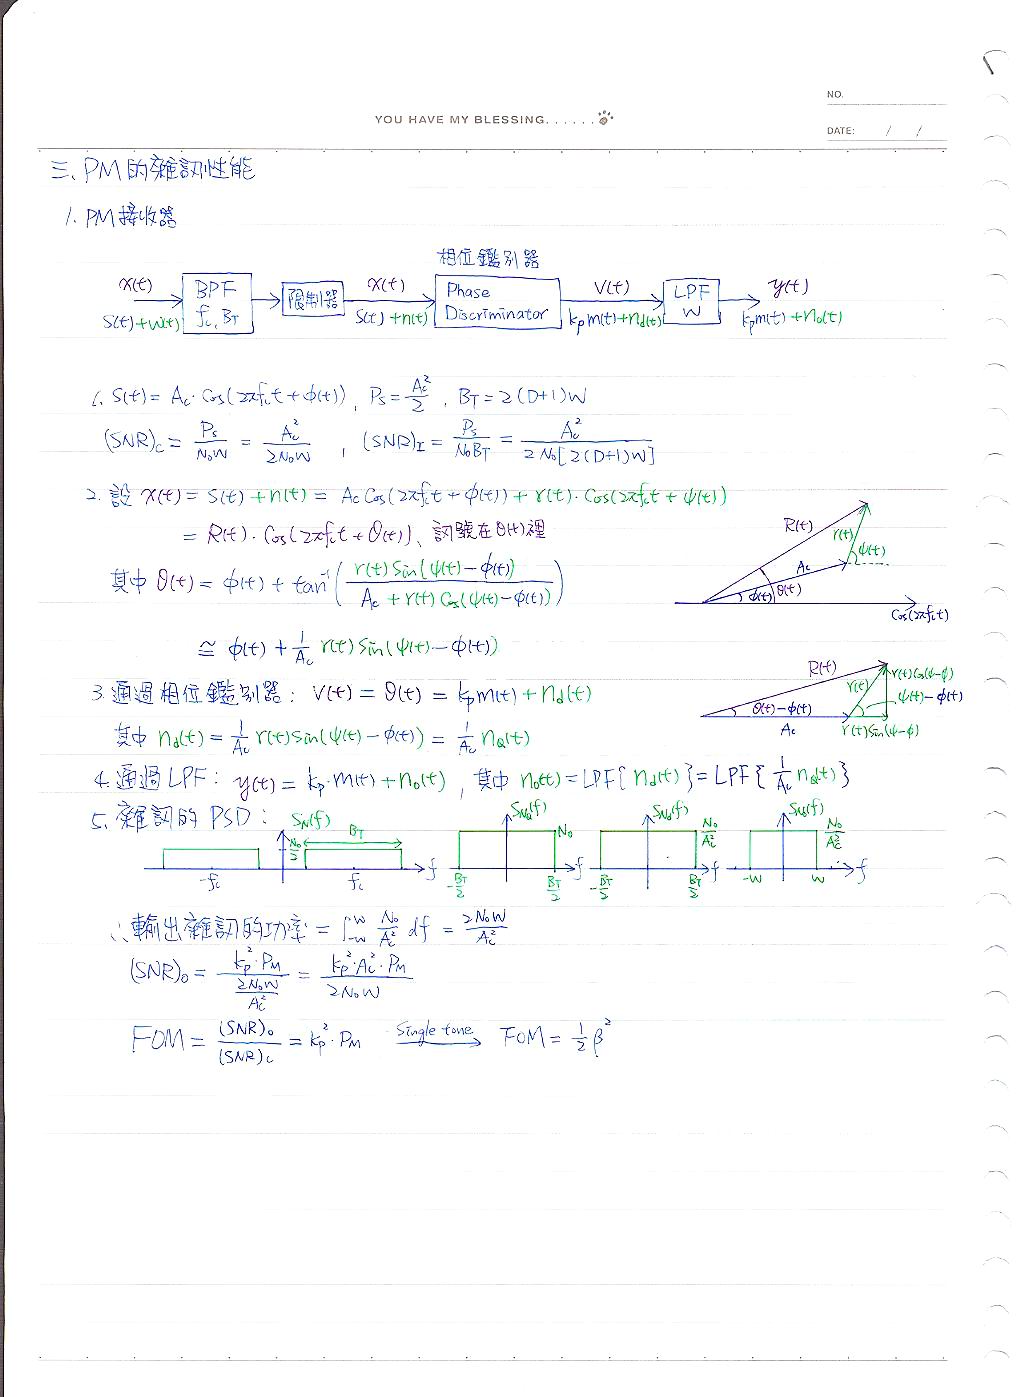 NO.
YOU HAVE MY BLESSING......
DATE: / /
三、PM的雜訊性能
1. PM接收器
相位鑑別器
x(t) BPF fc, BT 限制器 x(t) Phase Discriminator v(t) LPF W y(t)
s(t)+w(t) s(t)+n(t) kpm(t)+nd(t) kpm(t)+no(t)
1. s(t) = Ac·Cos(2πfct+φ(t)), Ps = Ac²/2, BT = 2(D+1)W
(SNR)c = Ps/N0W = Ac²/2N0W, (SNR)I = Ps/N0BT = Ac²/2N0[2(D+1)W]
2. 設 x(t) = s(t)+n(t) = Ac Cos(2πfct+φ(t)) + r(t)·Cos(2πfct+ψ(t))
= R(t)·Cos(2πfct+θ(t))、訊號在θ(t)裡
其中 θ(t) = φ(t) + tan⁻¹( r(t)Sin(ψ(t)-φ(t)) / Ac + r(t)Cos(ψ(t)-φ(t)) )
≅ φ(t) + 1/Ac r(t)Sin(ψ(t)-φ(t))
R(t) r(t) ψ(t) Ac φ(t) θ(t) Cos(2πfct)
R(t) r(t) r(t)Cos(ψ-φ) θ(t)-φ(t) ψ(t)-φ(t) Ac r(t)Sin(ψ-φ)
3. 通過相位鑑別器: v(t) = θ(t) = kpm(t)+nd(t)
其中 nd(t) = 1/Ac r(t)Sin(ψ(t)-φ(t)) = 1/Ac nQ(t)
4. 通過LPF: y(t) = kp·m(t)+no(t), 其中 no(t) = LPF{nd(t)} = LPF{1/Ac nQ(t)}
5. 雜訊的PSD:
SN(f) N0/2 BT -fc fc f
SNQ(f) N0 -BT/2 BT/2 f
SNd(f) N0/Ac² -BT/2 BT/2 f
SNo(f) N0/Ac² -W W f
∴輸出雜訊的功率 = ∫-W^W N0/Ac² df = 2N0W/Ac²
(SNR)o = kp²·PM / (2N0W/Ac²) = kp²·Ac²·PM / 2N0W
FOM = (SNR)o/(SNR)c = kp²·PM Single tone → FOM = 1/2 β²